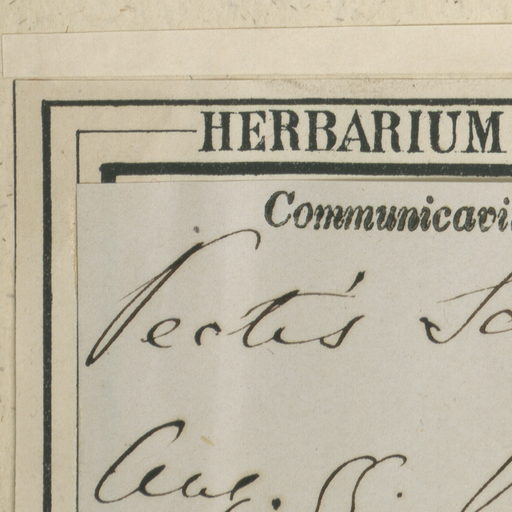 HERBARIUM
Communicavi
Pectis
Aug.